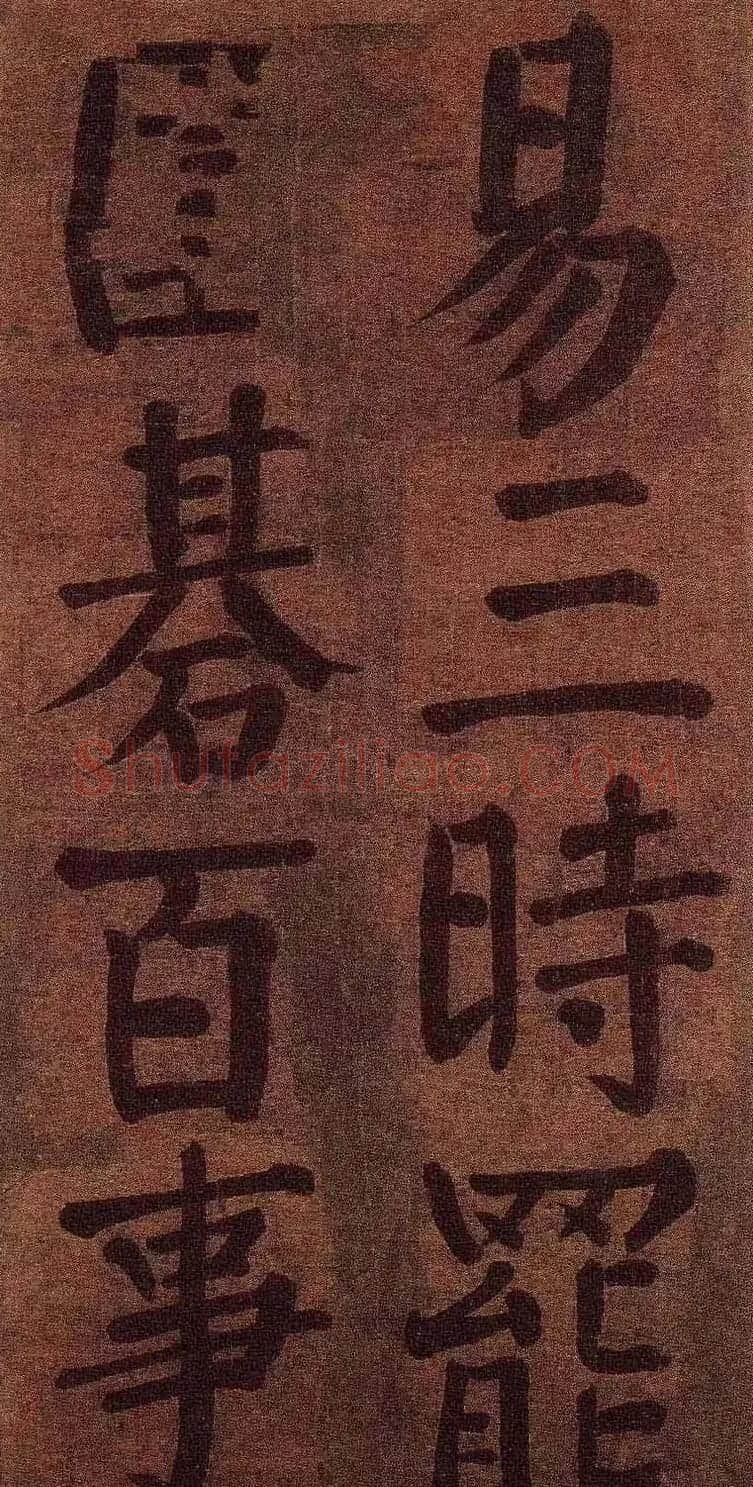 易三時罷
碁百事
Shufaziliao.COM